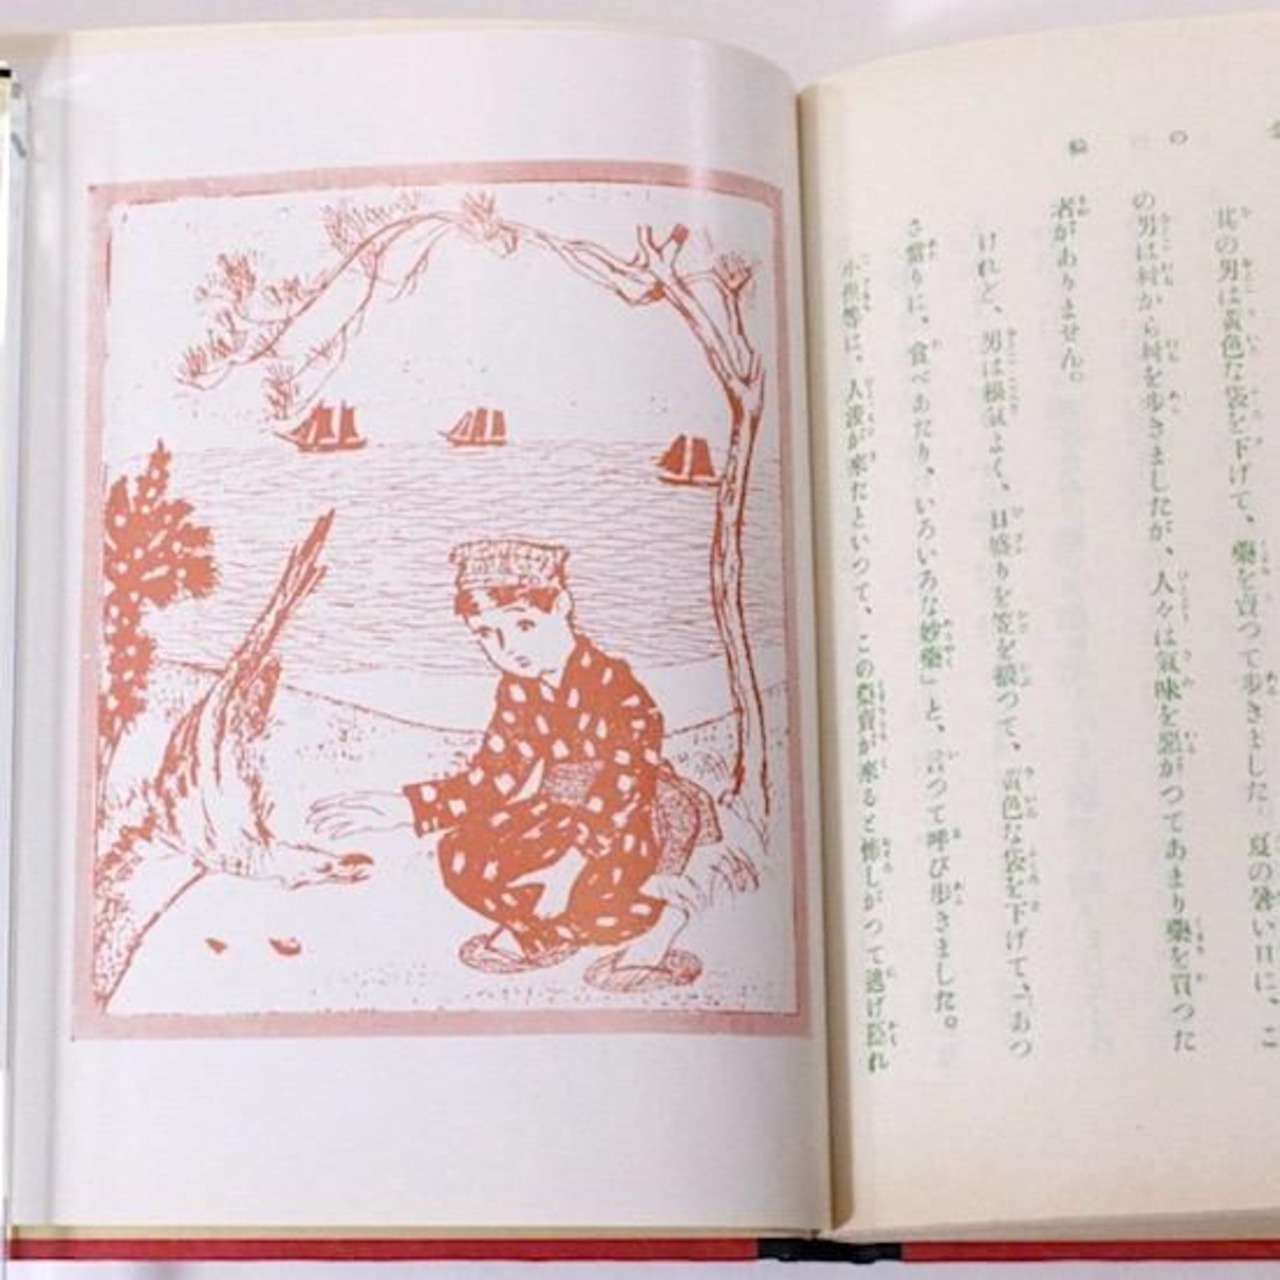 金の輪
其の男は黄色な袋を下げて、藥を賣つて歩きました。夏の暑い日に、こ
の男は村から村を歩きましたが、人々は氣味を惡がつてあまり藥を買つた
者がありません。
けれど、男は根氣よく、日盛りを笠を被つて、黄色な袋を下げて、「あつ
さ當りに、食べあたり、いろいろな妙藥」と、言つて呼び歩きました。
小供等は、人浚が來たといつて、この藥賣が來ると怖しがつて逃げ隱れ